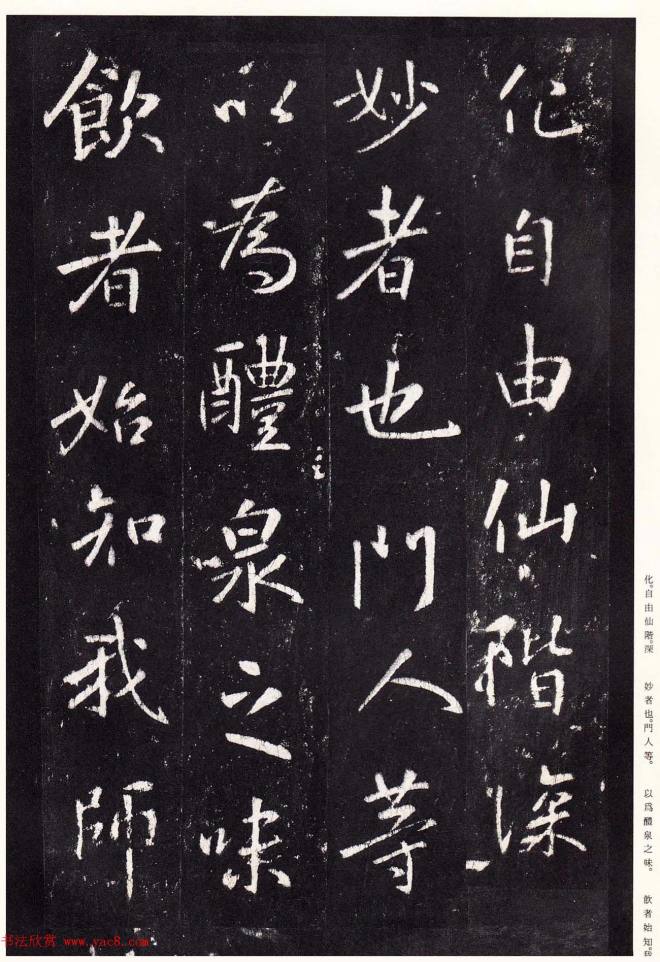 化自由仙階深
妙者也門人等
以為醴泉之味
飲者始知我師
化。自由仙階。深　妙者也。門人等。　以爲醴泉之味。　飲者始知。我
书法欣赏 www.yac8.com